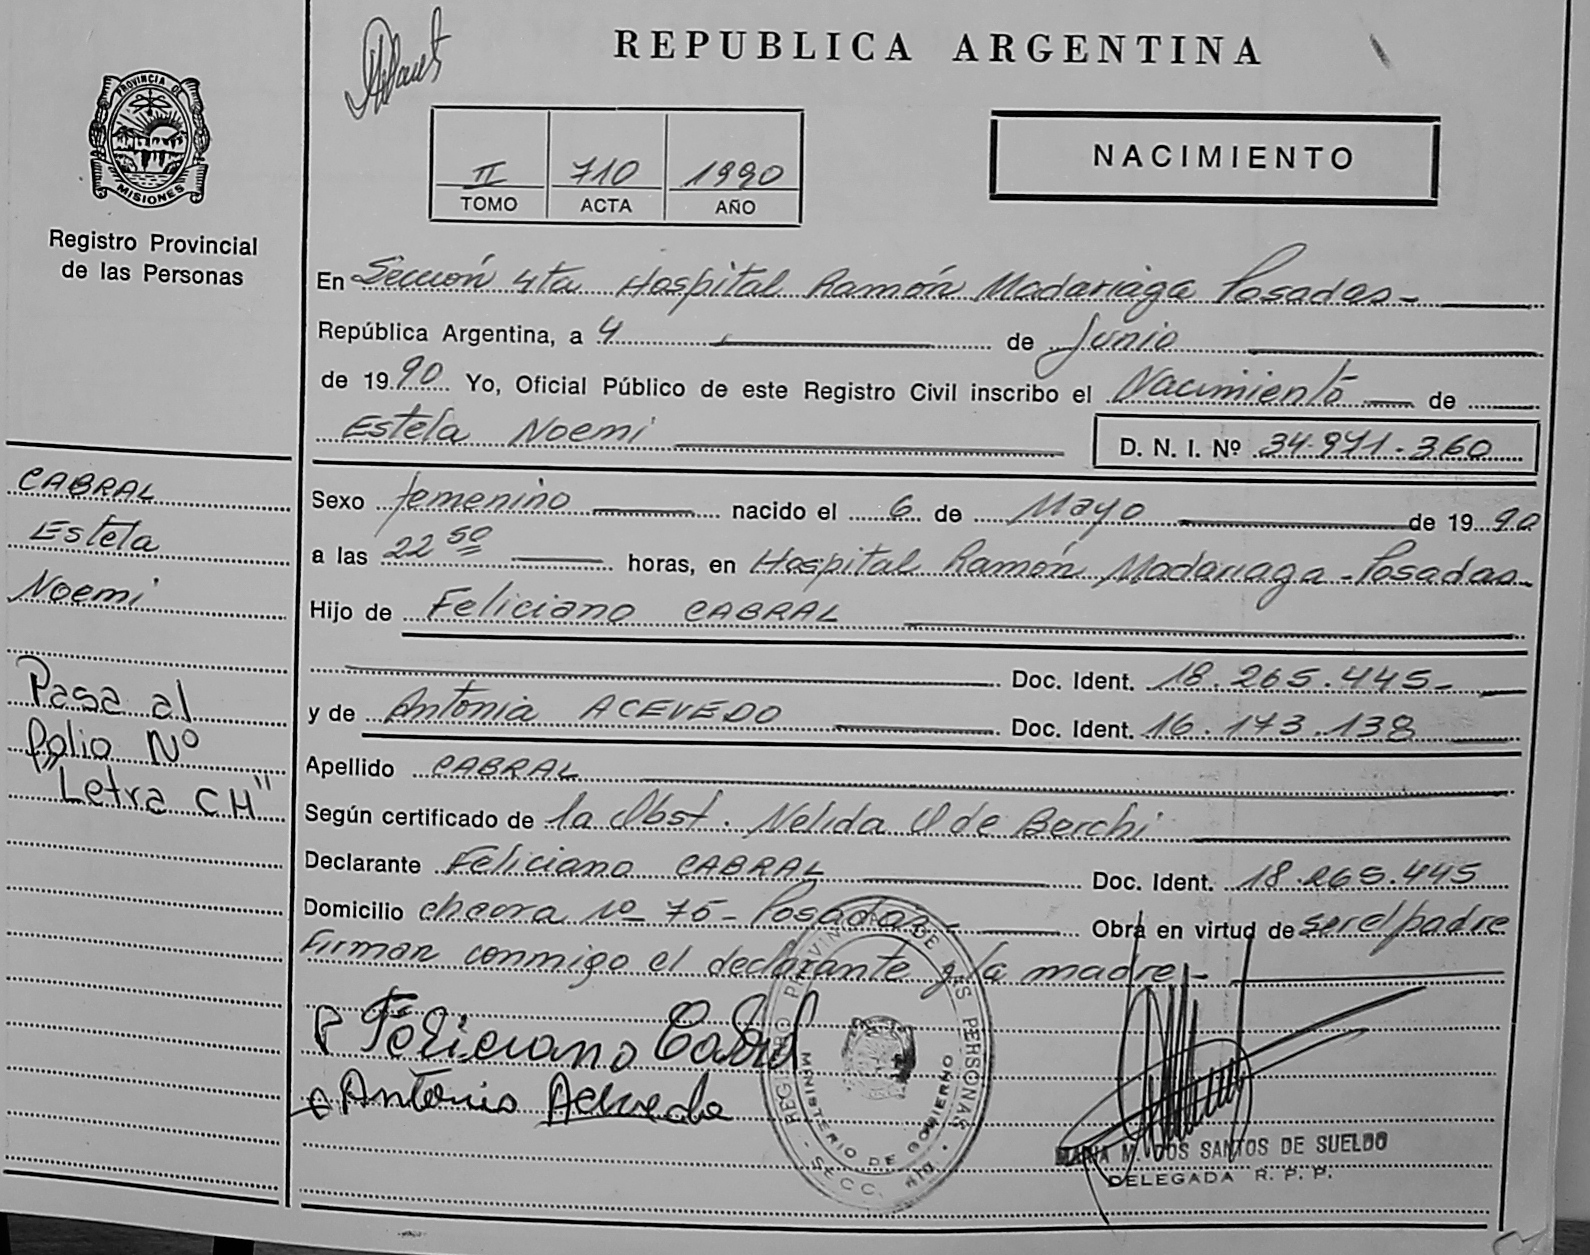 REPUBLICA ARGENTINA
PROVINCIA DE
MISIONES
Registro Provincial
de las Personas
II 710 1990
TOMO ACTA AÑO
NACIMIENTO
En Sección 4ta Hospital Ramón Madariaga Posadas-
República Argentina, a 4 de Junio
de 1990 Yo, Oficial Público de este Registro Civil inscribo el Nacimiento de
Estela Noemi D. N. I. Nº 34.971.360
CABRAL
Estela
Noemi
Pasa al
folio Nº
"Letra CH"
Sexo femenino nacido el 6 de Mayo de 1990
a las 22 50 horas, en Hospital Ramón Madariaga - Posadas-
Hijo de Feliciano CABRAL
Doc. Ident. 18.265.445-
y de Antonia ACEVEDO Doc. Ident. 16.173.138
Apellido CABRAL
Según certificado de la Obst. Nelida de Berchi
Declarante Feliciano CABRAL Doc. Ident. 18.265.445
Domicilio chacra Nº 75- Posadas- Obra en virtud de ser el padre
Firman conmigo el declarante y la madre.-
Feliciano Cabral
Antonia Acevedo
REGISTRO PROVINCIAL DE LAS PERSONAS
MINISTERIO DE GOBIERNO
SECC. 4ta
MARIA M. DOS SANTOS DE SUELDO
DELEGADA R. P. P.